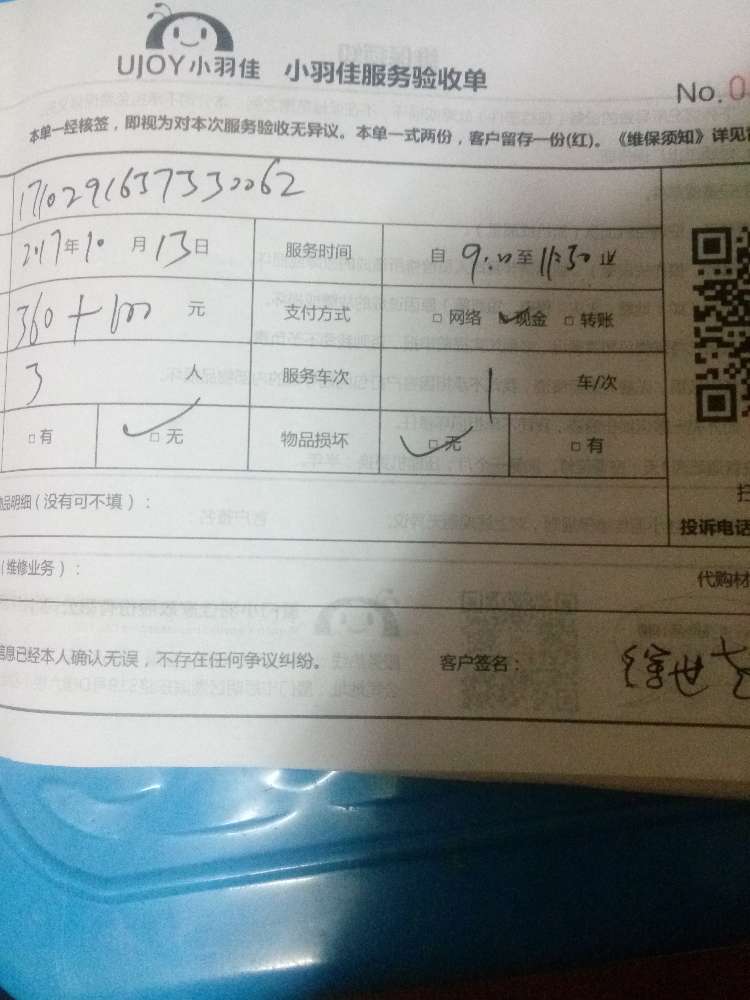 UJOY小羽佳 小羽佳服务验收单
No.0
本单一经核签，即视为对本次服务验收无异议。本单一式两份，客户留存一份(红)。《维保须知》详见
2017年10月13日 服务时间 自9:00至11:30
360+100元 支付方式 □网络 ☑现金 □转账
3人 服务车次 1车/次
□有 ☑无 物品损坏 ☑无 □有
品明细（没有可不填）：
投诉电话
（维修业务）：
代购材
信息已经本人确认无误，不存在任何争议纠纷。 客户签名：